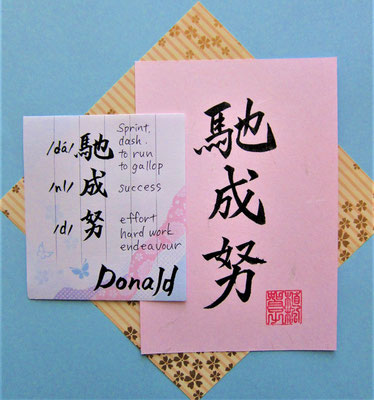 /dá/
馳
Sprint,
dash.
to run
to gallop
/nl/
成
success
/d/
努
effort
hard work
endeavour
Donald
馳
成
努